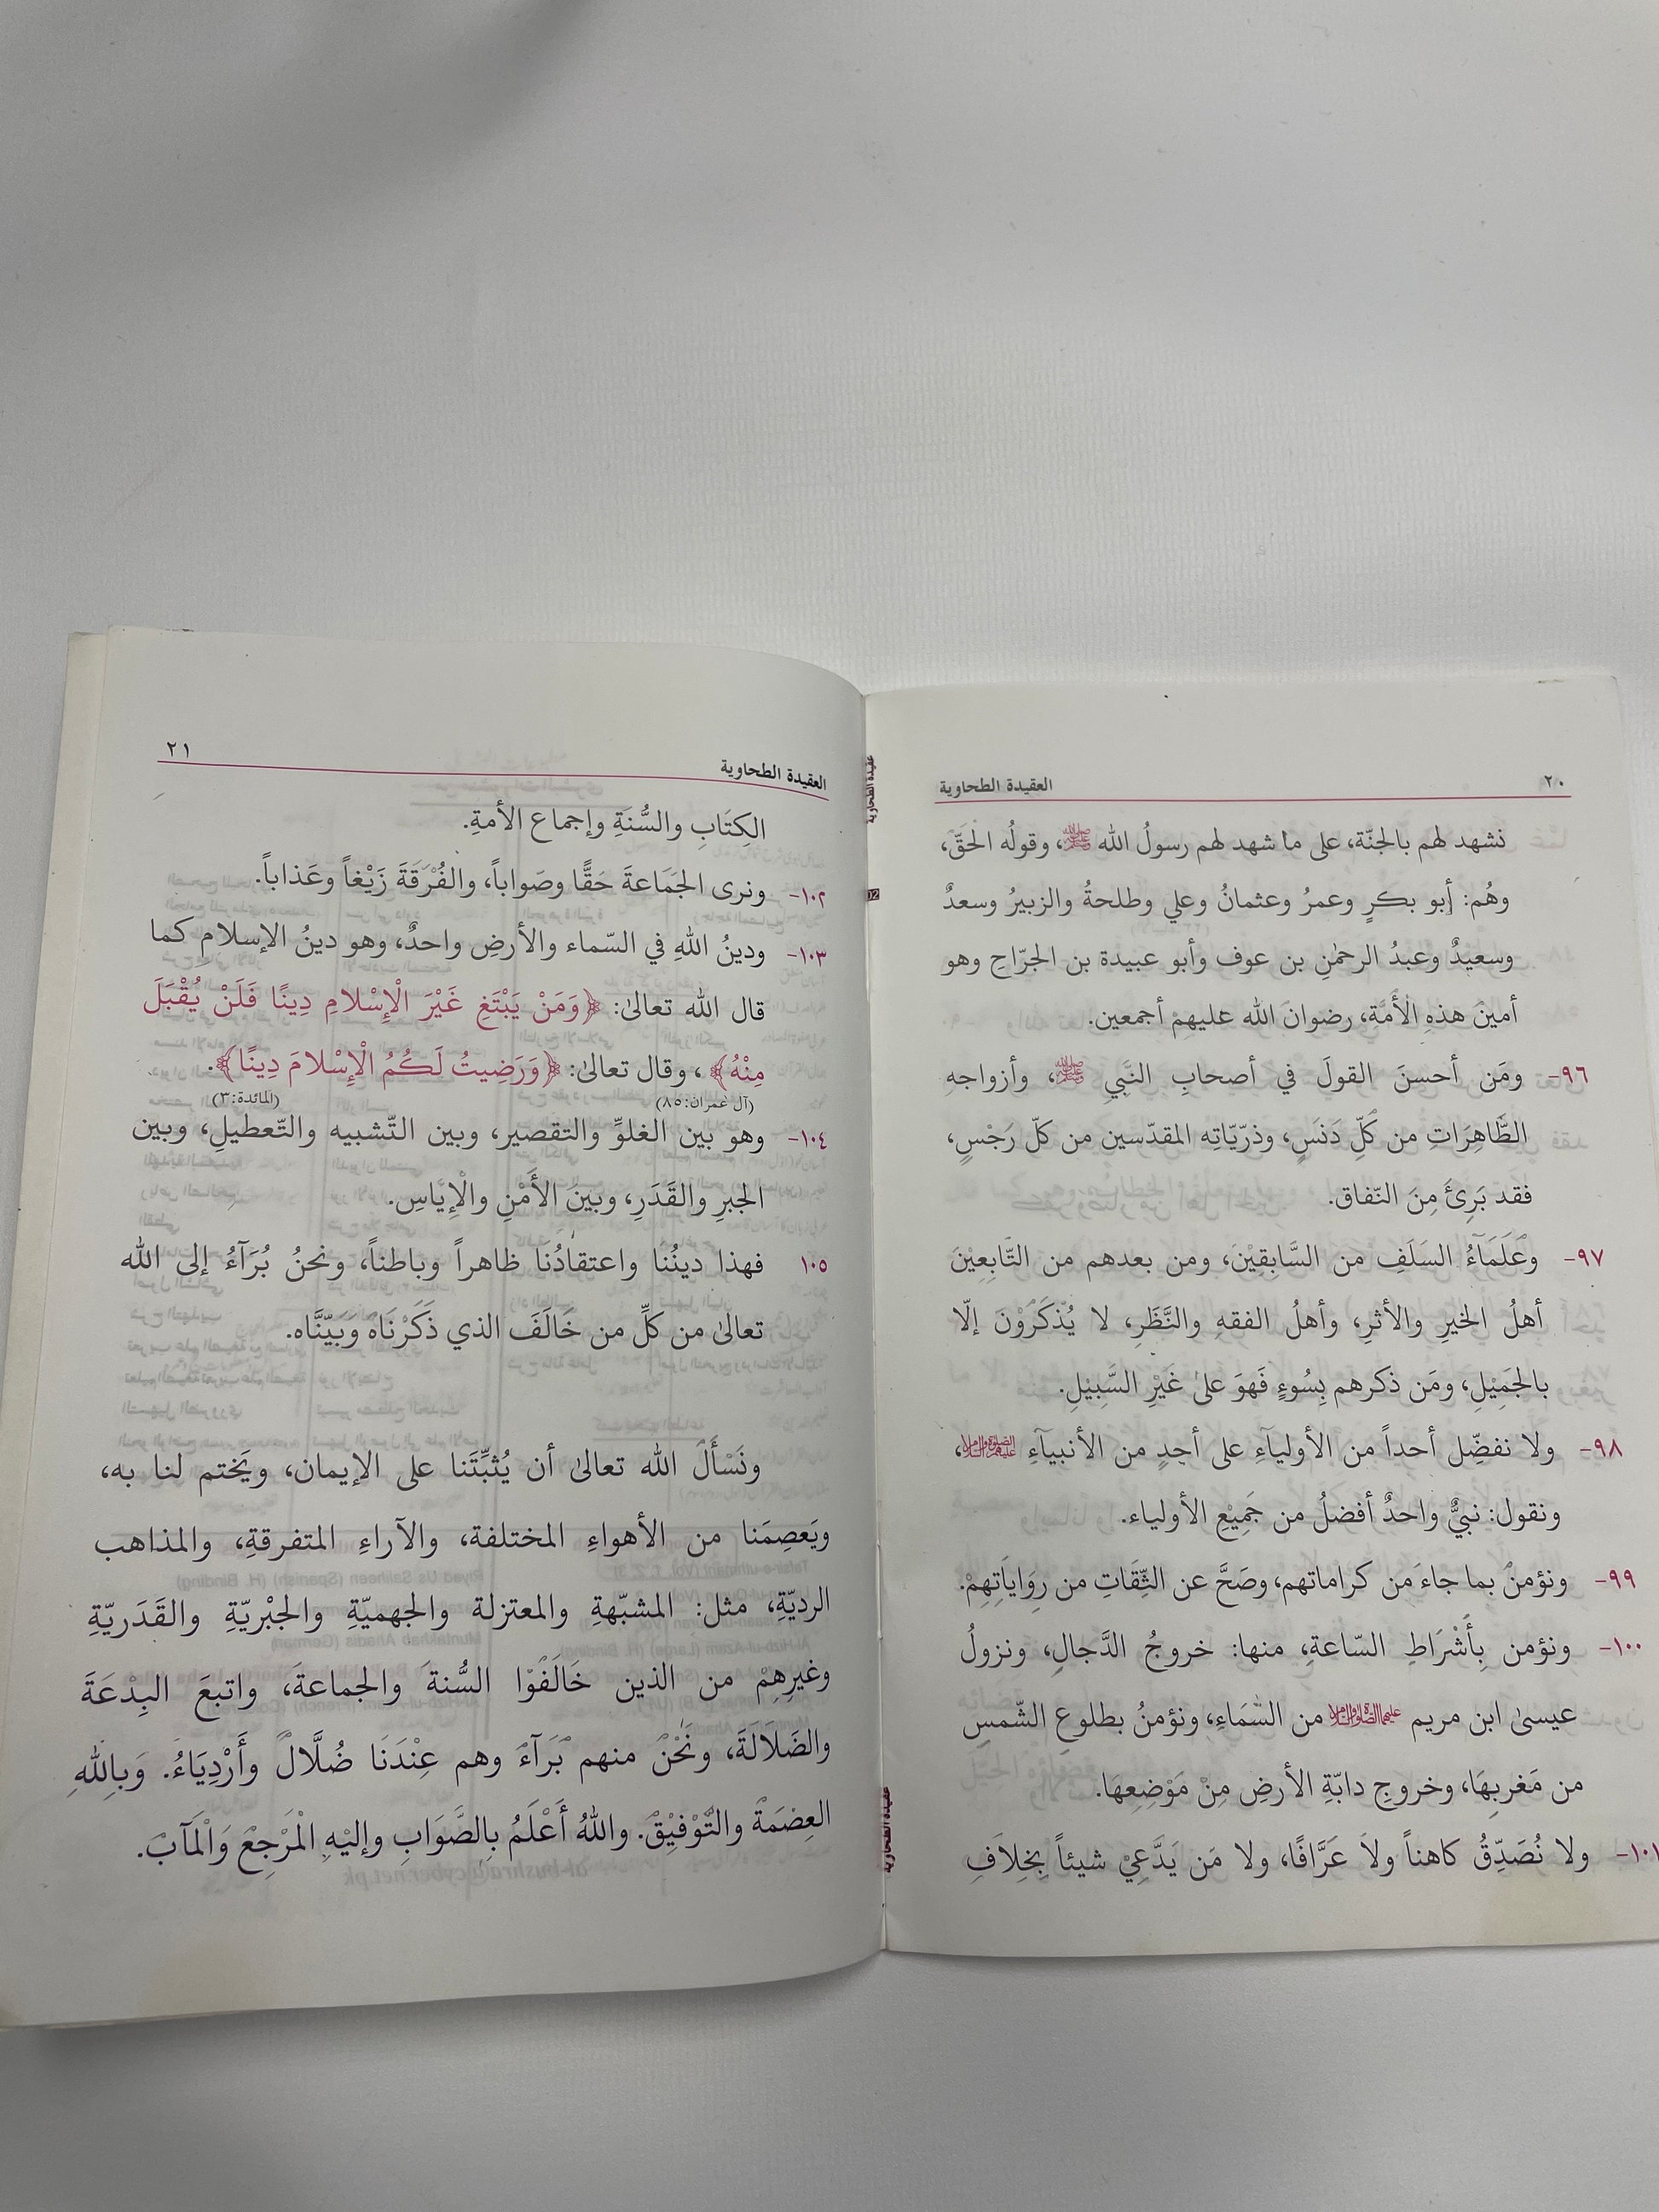 ٢٠ العقيدة الطحاوية
نشهد لهم بالجنّة، على ما شهد لهم رسولُ الله ﷺ، وقولُه الحَقّ،
وهُم: أبو بكرٍ وعمرُ وعثمانُ وعلي وطلحةُ والزبيرُ وسعدٌ
وسعيدٌ وعبدُ الرحمٰنِ بن عوف وأبو عبيدة بن الجرّاحِ وهو
أمينُ هذهِ الأمَّة، رضوانُ الله عليهمْ أجمعين.
٩٦- ومَن أحسنَ القولَ في أصحابِ النَّبيِ ﷺ، وأزواجهِ
الطَّاهِرَاتِ من كلِّ دَنَسٍ، وذرّيّاتِه المقدّسين من كلّ رَجْسٍ،
فقد بَرِئَ مِنَ النّفاق.
٩٧- وعُلَمَآءُ السَلَفِ من السَّابِقيْنَ، ومن بعدهم من التَّابِعِيْنَ
أهلُ الخيرِ والأثرِ، وأهلُ الفقهِ والنَّظَرِ، لا يُذكَرُوْنَ إلّا
بالجَمِيْلِ، ومَن ذكرهم بِسُوءٍ فَهوَ علىٰ غَيْرِ السَّبِيْلِ.
٩٨- ولا نفضِّل أحداً من الأولياَءِ على أحدٍ من الأنبيآءِ عليهم الصلاة والسلام،
ونقول: نبيٌّ واحدٌ أفضلُ من جَمِيْعِ الأولياء.
٩٩- ونؤمنُ بما جاءَ من كراماتهم، وصَحَّ عن الثِّقَاتِ من رِوَايَاتِهِمْ.
١٠٠- ونؤمن بِأَشْرَاطِ السّاعةِ، منها: خروجُ الدَّجالِ، ونزولُ
عيسىٰ ابن مريم عليهما الصلاة والسلام من السَّمَاءِ، ونؤمنُ بطلوعِ الشّمسِ
من مَغرِبِهَا، وخروجِ دابّةِ الأرضِ مِنْ مَوْضِعِهَا.
١٠١- ولا نُصَدِّقُ كاهناً ولاَ عَرَّافًا، ولا مَن يَدَّعِيْ شيئاً بِخِلاَفِ
العقيدة الطحاوية ٢١
الكِتَابِ والسُّنةِ وإجماع الأمةِ.
١٠٢- ونرى الجَمَاعةَ حَقًّا وصَواباً، والفُرْقَةَ زَيْغاً وعَذاباً.
١٠٣- ودينُ اللهِ في السّماء والأرضِ واحدٌ، وهو دينُ الإسلام كما
قال الله تعالىٰ: ﴿وَمَنْ يَبْتَغِ غَيْرَ الْإِسْلامِ دِينًا فَلَنْ يُقْبَلَ
مِنْهُ﴾ ، وقال تعالىٰ: ﴿وَرَضِيتُ لَكُمُ الْإِسْلامَ دِينًا﴾.
(آل عمران:٨٥) (المائدة:٣)
١٠٤- وهو بين الغلوِّ والتقصير، وبين التّشبيه والتّعطيلِ، وبين
الجبرِ والقَدَرِ، وبينَ الأَمْنِ والإِيَّاسِ.
١٠٥ فهذا دينُنَا واعتقادُنَا ظاهراً وباطناً، ونحنُ بُرَآءُ إلى الله
تعالىٰ من كلِّ من خَالَفَ الذي ذَكَرْنَاهُ وَبَيّنَّاه.
ونَسْأَلُ الله تعالىٰ أن يُثبِّتَنا على الإيمان، ويَختم لنا به،
ويَعصِمَنا من الأهواءِ المختلفة، والآراءِ المتفرقةِ، والمذاهب
الرديّةِ، مثل: المشبّهةِ والمعتزلة والجهميّةِ والجبْريّةِ والقَدَريّةِ
وغيرِهِمْ من الذين خَالَفُوْا السُّنةَ والجماعةَ، واتبعَ البِدْعَةَ
والضَلَالَةَ، ونَحْنُ منهم بَرَآءُ وهم عِنْدَنَا ضُلَّالٌ وأَرْدِيَاءُ. وَبِاللهِ
العِصْمَةُ والتَّوْفِيْقُ. واللهُ أَعْلَمُ بِالصَّوَابِ وإليْهِ الْمَرْجِعُ وَالْمَآبُ.
عقيدة الطحاوية
عقيدة الطحاوية